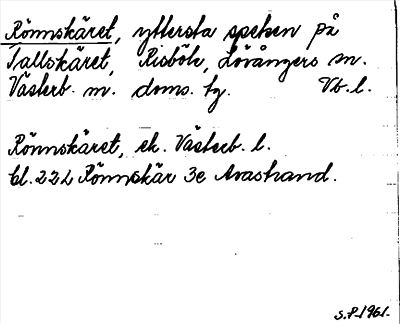 Rönnskäret, yttersta spetsen på
Tallskäret, Risböle, Lövångers sn.
Västerb. m. doms. tg. Vb. l.
Rönnskäret, ek. Västerb. l.
bl. 22L Rönnskär 3e Avastrand.
S.P. 1961.